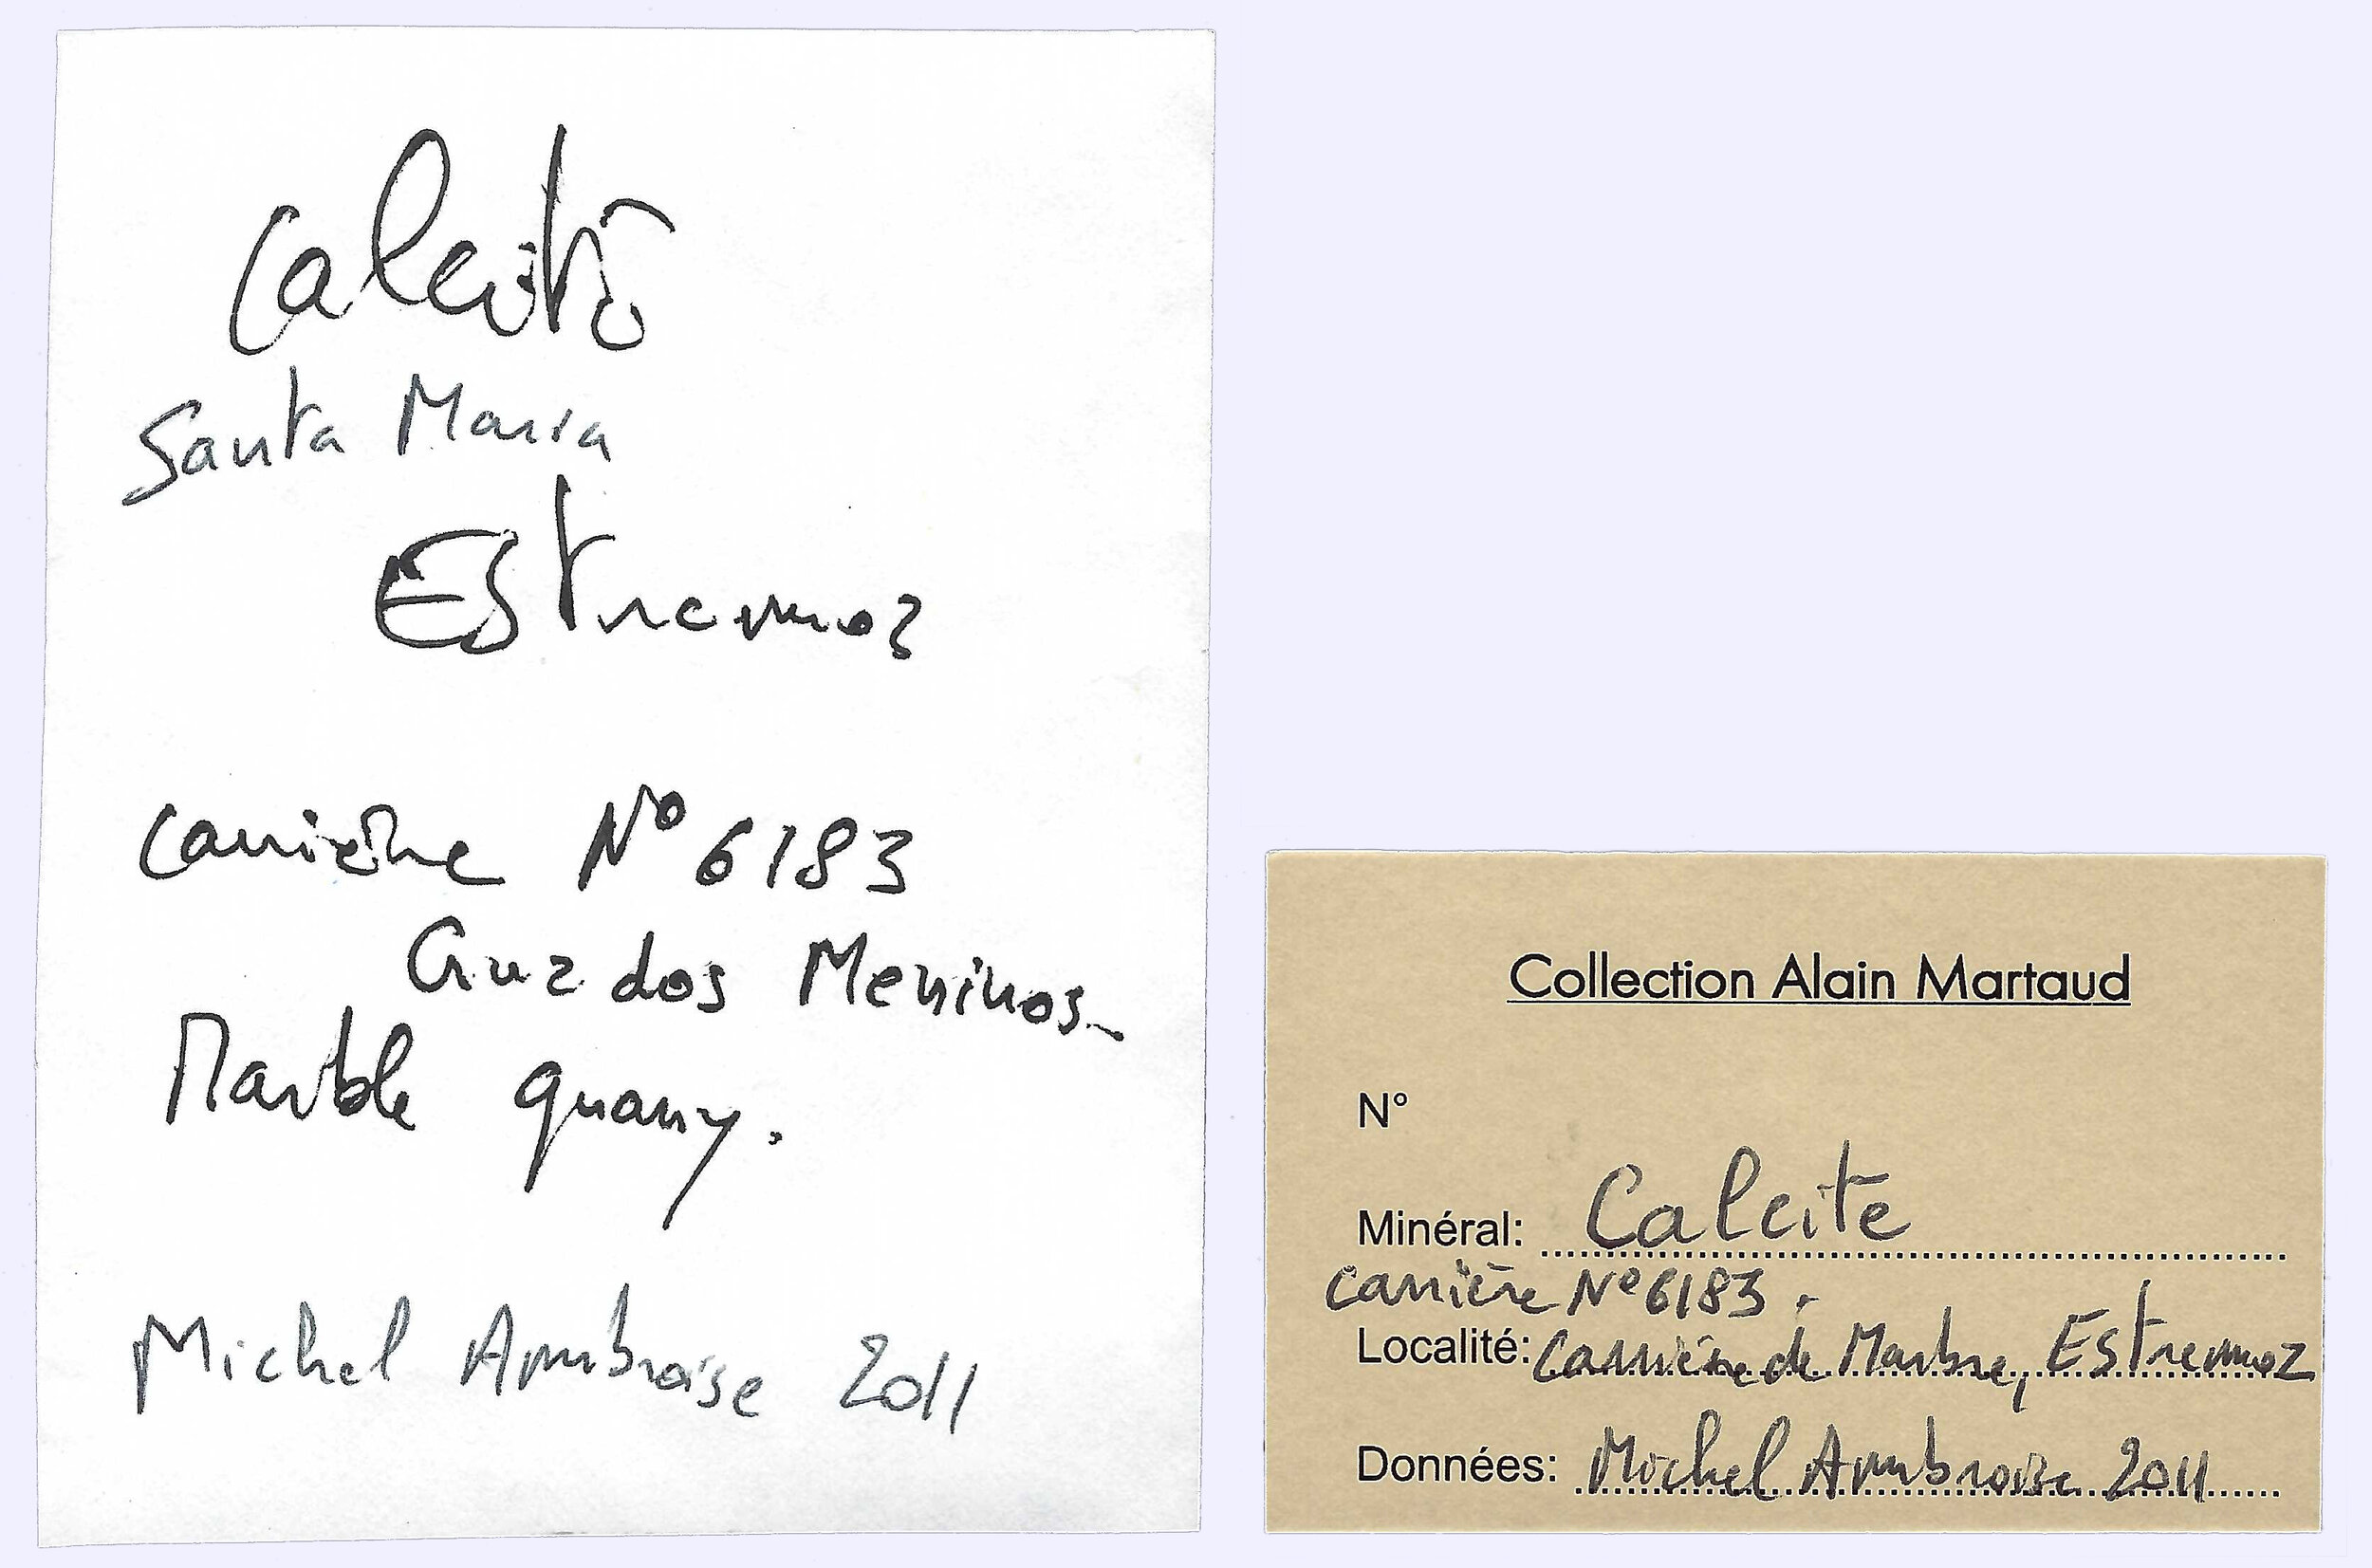 Calcite
Santa Maria
Estremoz
Carrière N° 6183
Cruz dos Meninos
Marble quarry.
Michel Ambroise 2011
Collection Alain Martaud
N°
Minéral: Calcite
Carrière N° 6183.
Localité: Carrière de Marbre, Estremoz
Données: Michel Ambroise 2011